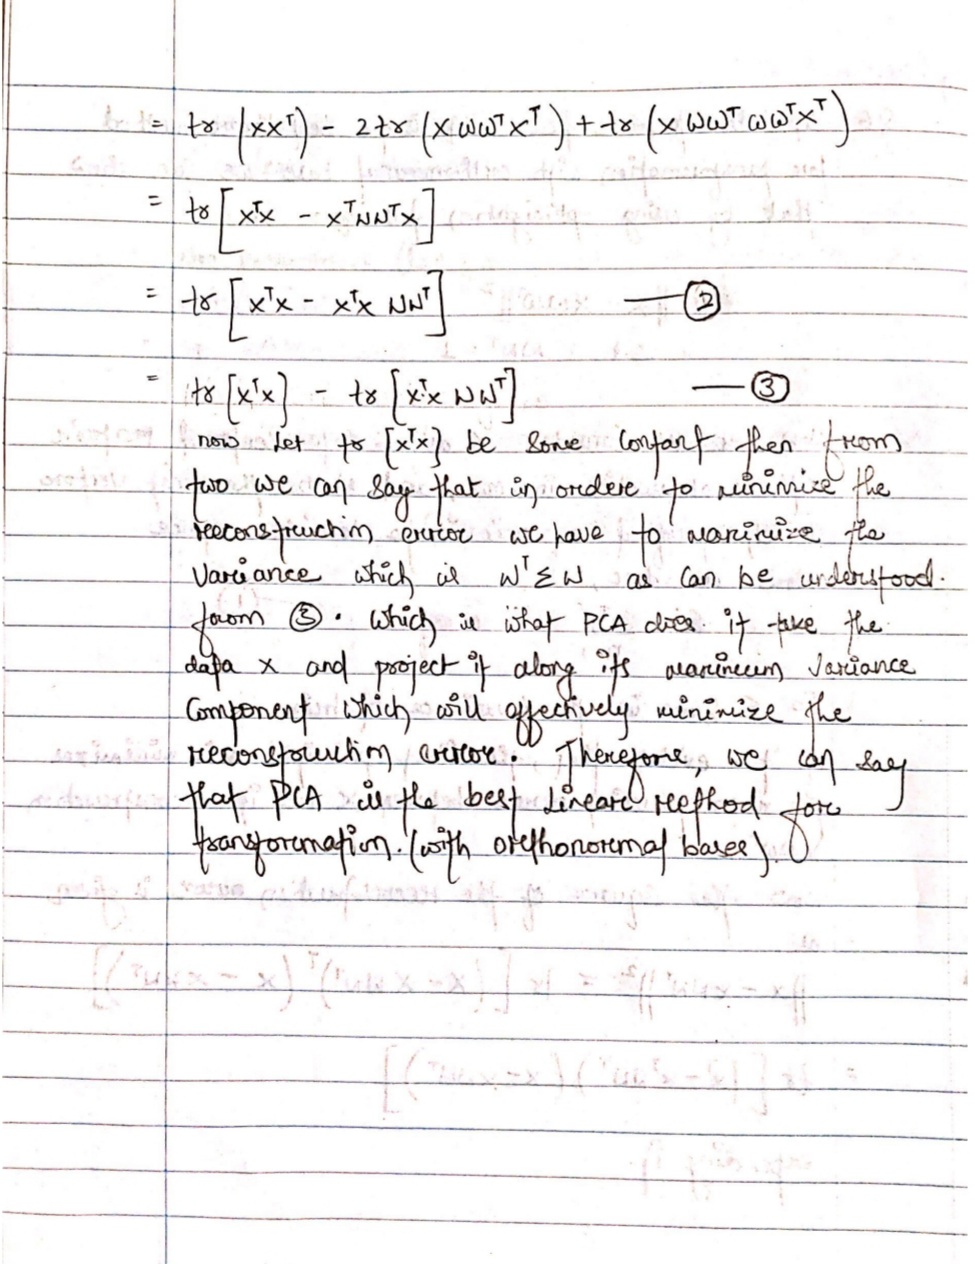 = tr (XXᵀ) - 2tr (XωωᵀXᵀ) + tr (XωωᵀωωᵀXᵀ)
= tr [XᵀX - XᵀWWᵀX]
= tr [XᵀX - XᵀX WWᵀ] — ②
= tr [XᵀX] - tr [XᵀX WWᵀ] — ③
now Let tr [XᵀX] be some contant then from
two we can say that in order to minimize the
reconstruction error we have to maximize the
Variance which is WᵀΣW as can be understood.
from ③. Which is what PCA does. it take the
data X and project it along its maximum variance
Component which will effectively minimize the
reconstruction error. Therefore, we can say
that PCA is the best linear method for
transformation. (with orthonormal bases).